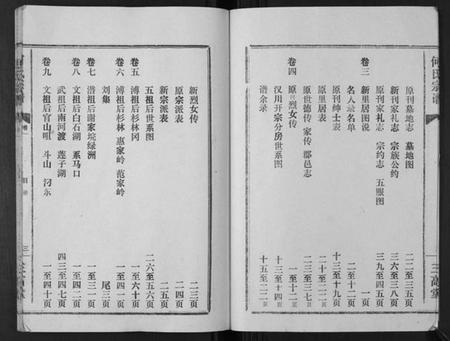 何氏宗谱
三高堂
原刊墓地志 墓地图 二二至三五页
新刊家礼志 宗族公约 三六至三八页
原刊家礼志 宗约志 五服图 三九至四五页
卷三 新里居图说 一页
名人录名单 二至一二页
原刊绅士表 十三至十九页
原里居表 二十至二二页
原世德传 家传 郡邑志 二三至二七页
卷四 原烈女传 一至十二页
汉川开宗分房世系图 十三至十四页
谱余录 十五至二二页
新烈女传 二三页
原宗派表 二四页
新宗派表 二五页
五祖后世系图 二六至五六页
卷五 溥祖后杉林冈 一至六十页
卷六 溥祖后杉林 惠家岭 范家岭
刘集 尾三页
卷七 潜祖后谢家垸绿洲 一至三一页
卷八 文祖后白石湖 系马口 一至四二页
武祖后南河渡 莲子湖 四三至四七页
卷九 文祖后官山咀 斗山 汈东 一至四十页
目录
三
三高堂